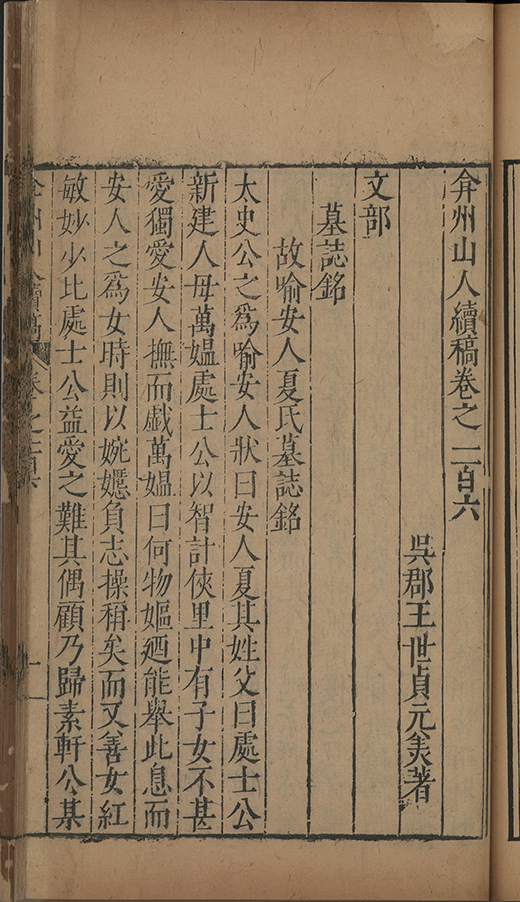 弇州山人續稿卷之一百六
吳郡王世貞元美著
文部
墓誌銘
故喻安人夏氏墓誌銘
太史公之爲喻安人狀曰安人夏其姓父曰處士公
新建人母萬媼處士公以智計俠里中有子女不甚
愛獨愛安人撫而戲萬媼曰何物嫗廼能舉此息而
安人之爲女時則以婉嫕負志操稱矣而又善女紅
敏妙少比處士公益愛之難其偶顧乃歸素軒公某